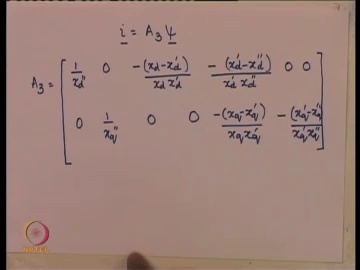 i = A₃ ψ
A₃ = [ 1/x_d'' 0 -(x_d-x_d')/(x_d x_d') -(x_d'-x_d'')/(x_d' x_d'') 0 0
0 1/x_q'' 0 0 -(x_q-x_q')/(x_q x_q') -(x_q'-x_q'')/(x_q' x_q'') ]
NPTEL